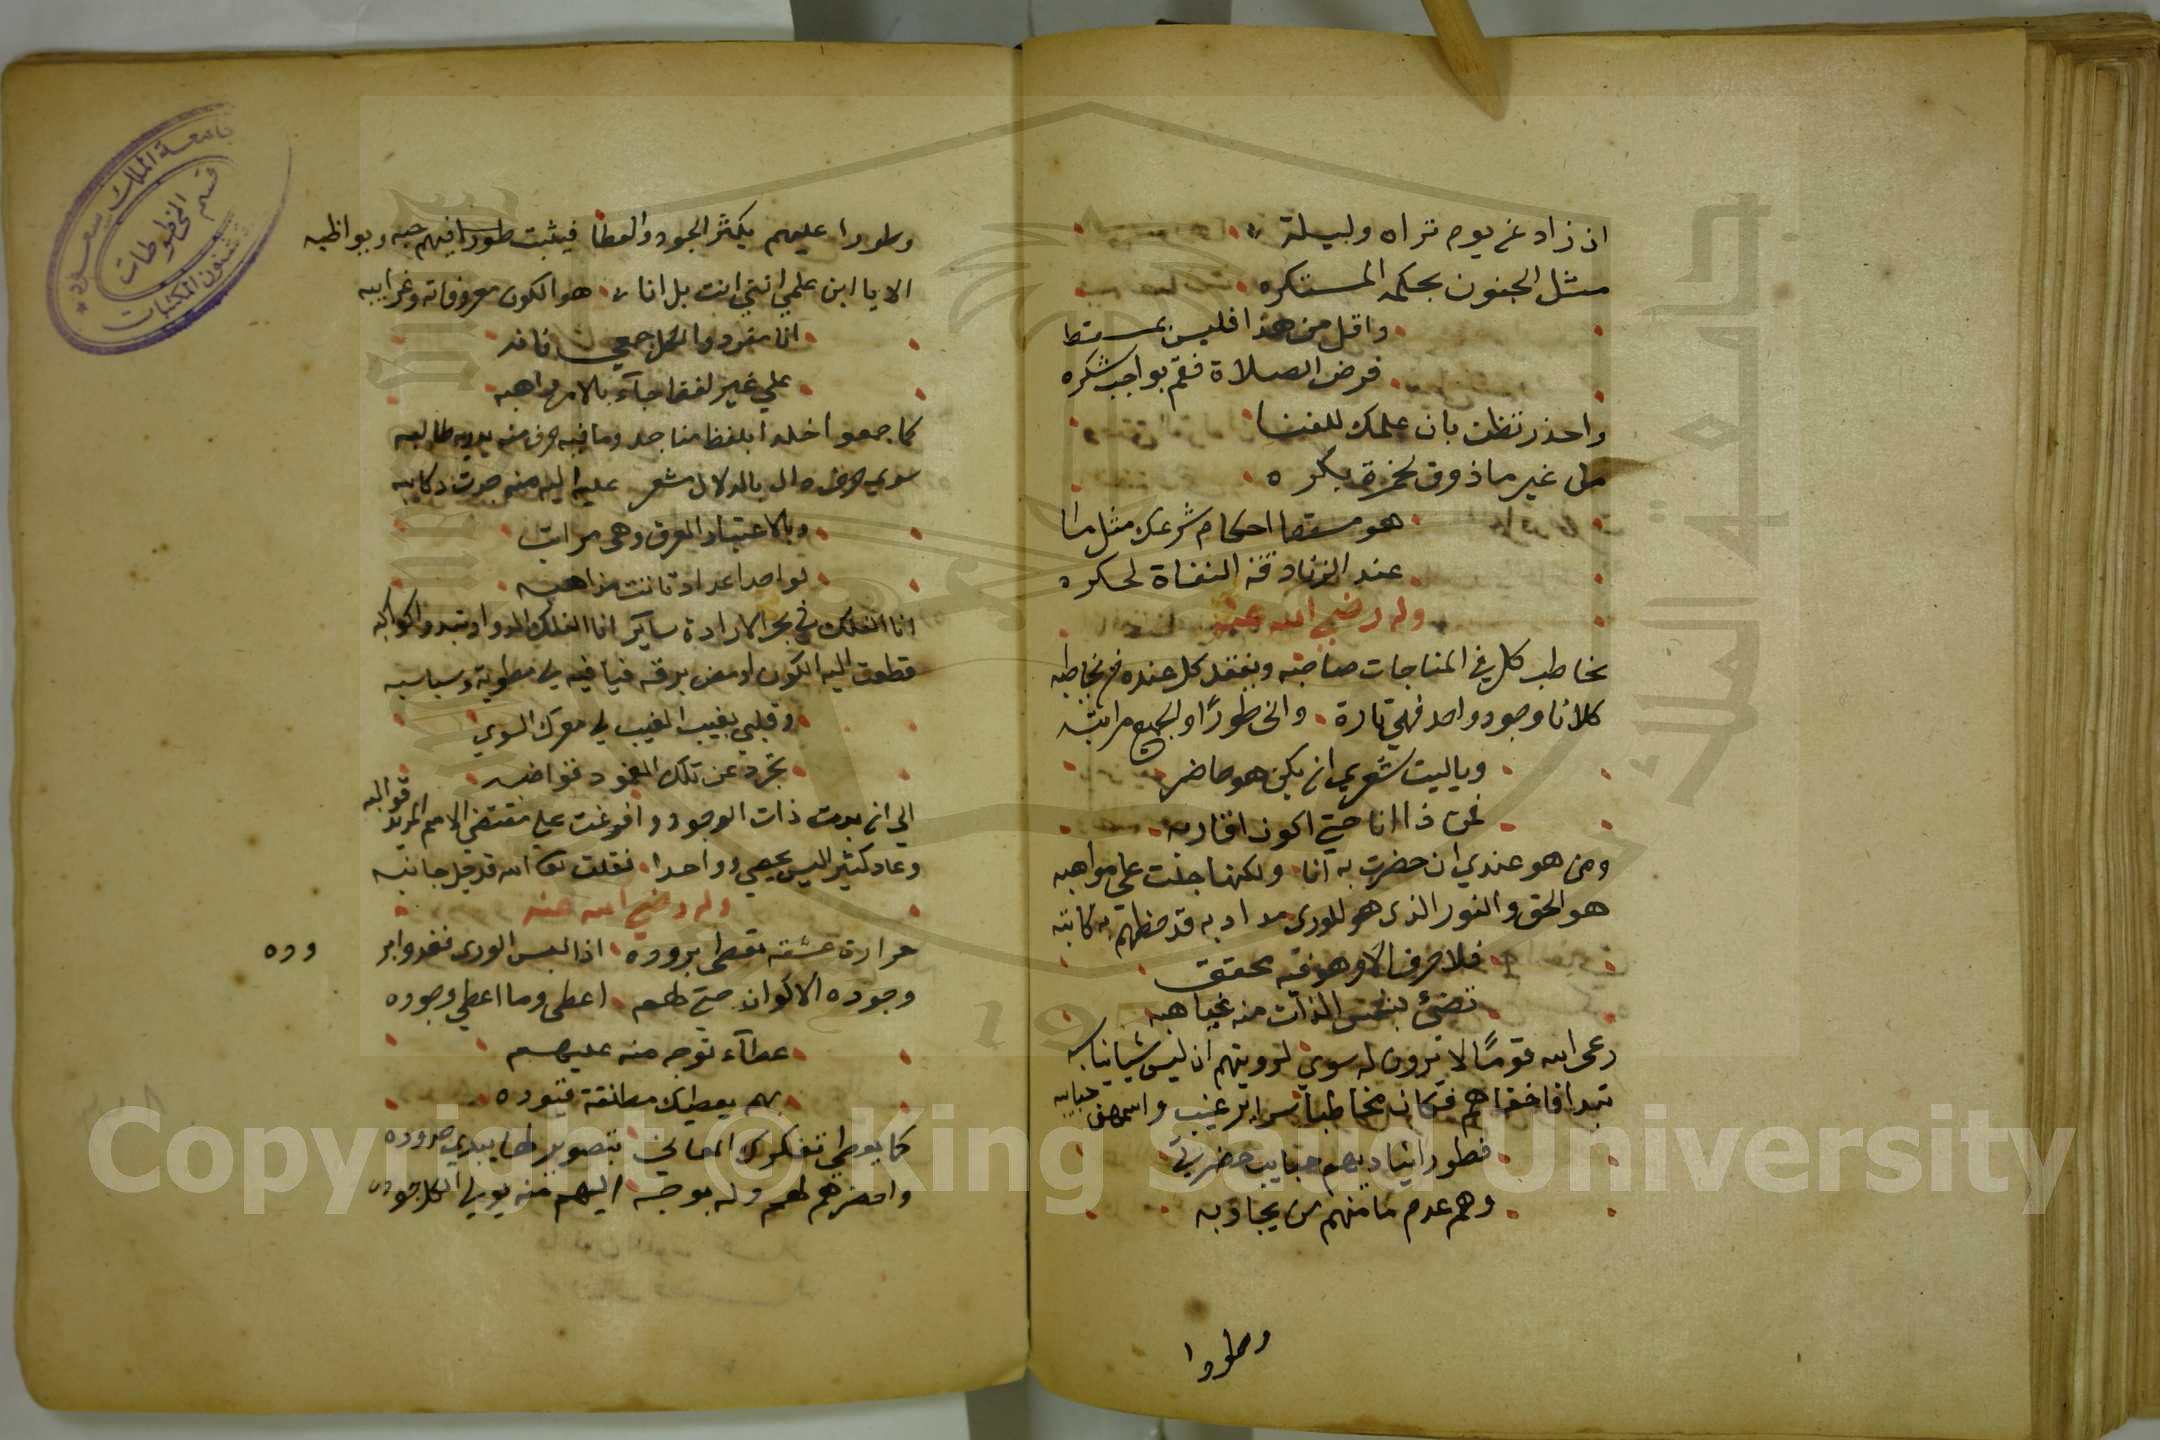 ان زاد عن يوم تراه وليلة
مثل الجنون بحكمه المستكره
واقل من هذا فليس بمسقط
فرض الصلاة فقم بواجب شكره
واحذر تظن بان علمك للفنا
من غير ما ذوق لخمرة بكره
هو مسقط احكام شرعك مثل ما
عند الزنادقة النفاة لحكره
وله رضي الله عنه
يخاطب كل في المناجات صاحبه ويفقد كل عنده من يخاطبه
كلانا وجود واحد فهي تارة والى طورًا والجميع مراتبه
وياليت شعري ان يكن هو حاضر
فمن ذا انا حتى اكون اقاربه
ومن هو عندي ان حضرت به انا ولكنها جلت علي مواهبه
هو الحق والنور الذي هو للورى مداد به قد خطهم به كاتبه
فلا حرف الا وهو فيه محقق
تضئ بشمس الذات منه غياهبه
رعى الله قومًا لا يرون له سوي لرويتهم ان ليس شيا يناسبه
تبدا فاخفاهم فكان مخاطبا سراير غيب واسمهن حبايبه
فطورا يناديهم حبايب حضرتي
وهم عدم ما منهم من يجاوبه
وطورا
وطورا عليهم يكثر الجود والعطا فيثبت طورا فيهم حبه ويواظبه
الا يا ابن علمي انني انت بل انا هو الكون معروفاته وغرايبه
انا مفرد والكل جمعي
علي غير لفظ جآء بالامر واهبه
كما جمعوا خلدا بلفظ مناجد وما فيه حرف منه يدريه طالبه
سوي حرف دال بالدلال مشعر عليه اليه منه جرت ركايبه
وبالاعتبار الفرق وهي مراتب
لواحد اعداد تانت مذاهبه
انا الفلك في بحر الارادة ساير انا الفلك الدوار تبدو كواكبه
قطعت اليه الكون اومض برقه فيافيه لي مطوية وسباسبه
وقلبي بغيب الغيب في معرك السوي
تجرد عن تلك الغمود قواضبه
الي ان بدت ذات الوجود وافرغت علي مقتضي الاسم المريد قوالبه
وعاد كثير ليس يحصي وواحدا فقلت تعالى الله قد جل جانبه
وله رضي الله عنه
حرارة عشقه تعطى بروده اذا لبس الورى فغدوا بر
وده
وجوده الاكوان حتي لهم اعطى وما اعطي وجوده
عطآء توجه منه عليهم
بهم يعطيك مطلقة قيوده
كما يعطي تفكرك المعاني بتصوير لها يبدي حدوده
واحضرهم لهم وله بوجه اليهم منه يولي الكل جوده
جامعة الملك سعود
قسم المخطوطات
شئون المكتبات
Copyright © King Saud University
جامعة الملك سعود